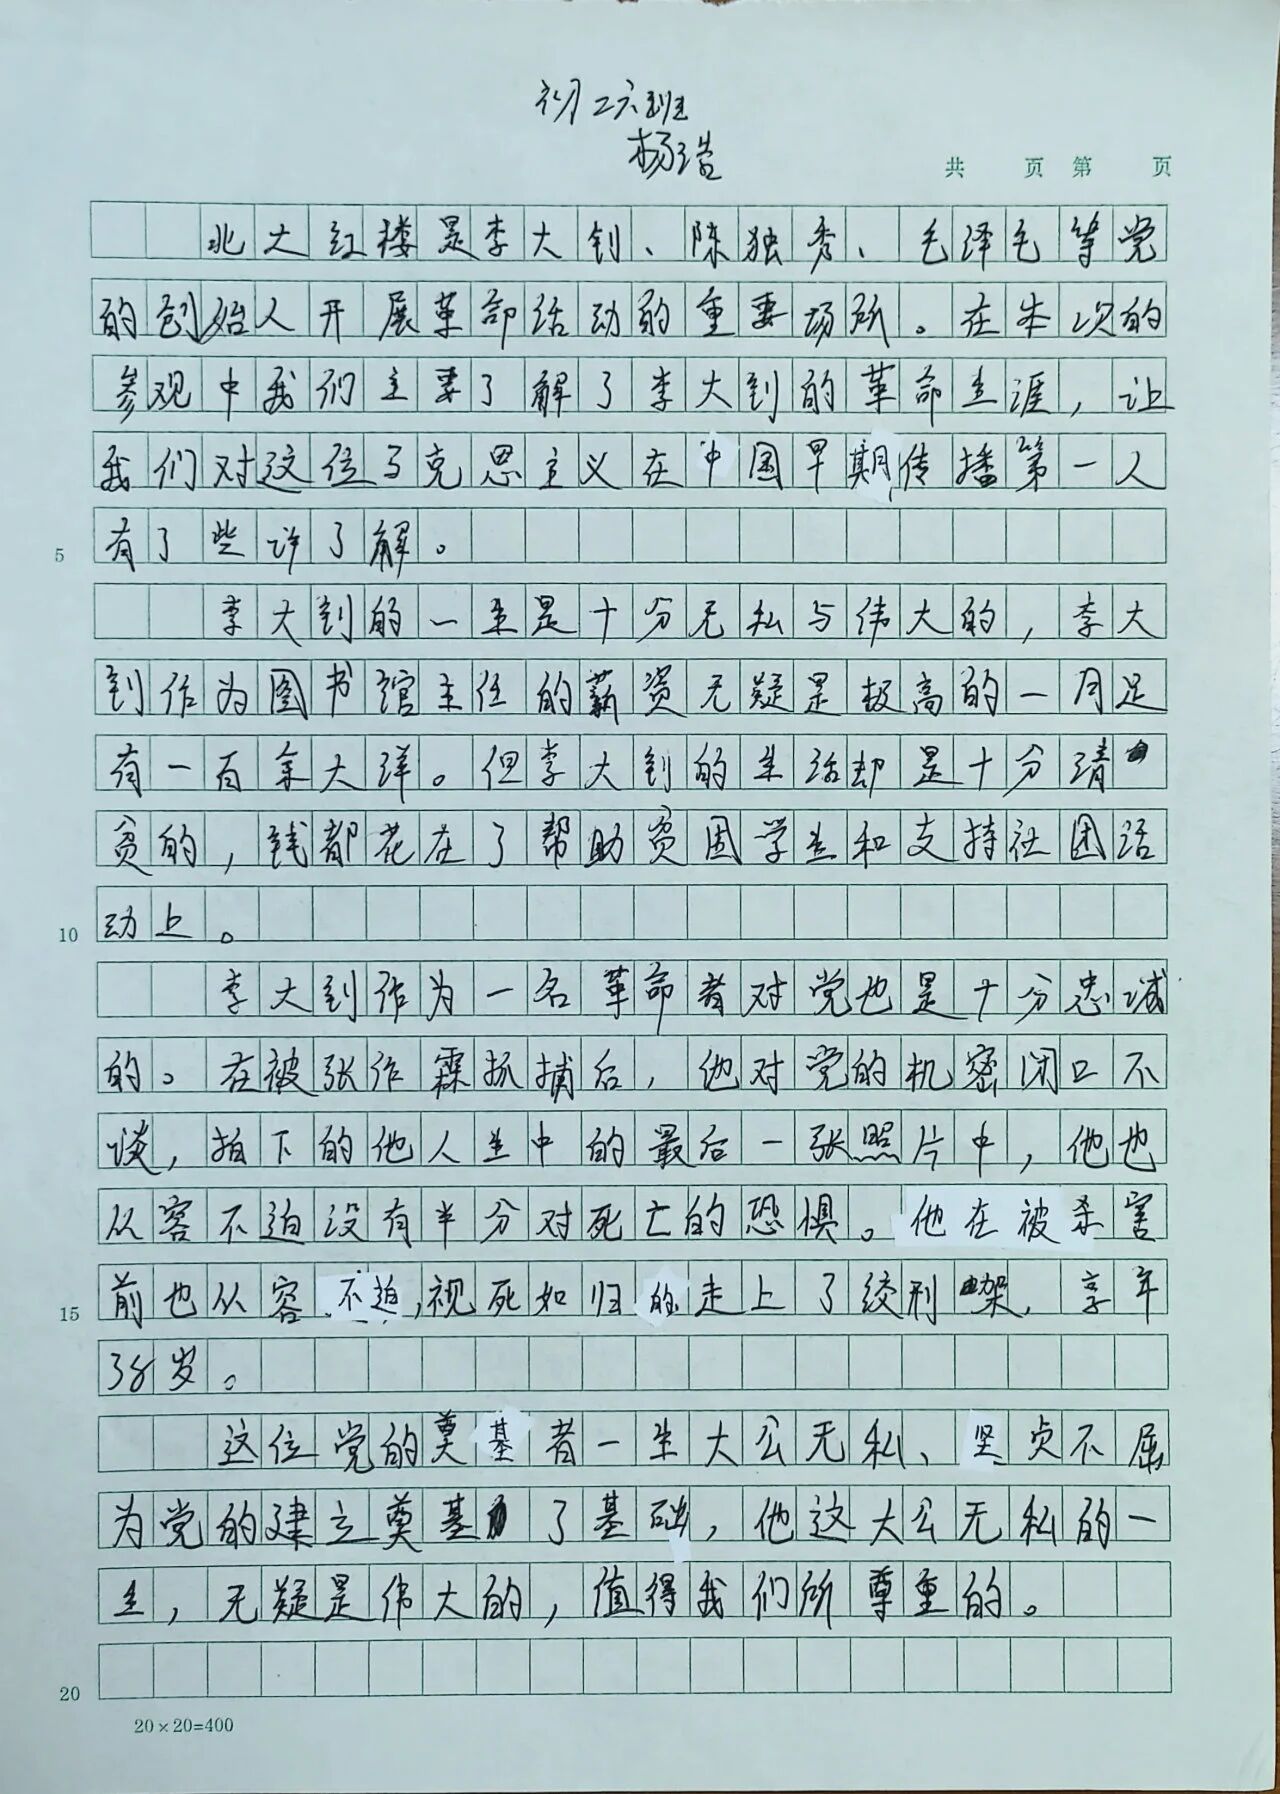 初二六班
杨浩
共 页 第 页
北大红楼是李大钊、陈独秀、毛泽毛等党
的创始人开展革命活动的重要场所。在本次的
参观中我们主要了解了李大钊的革命生涯，让
我们对这位马克思主义在中国早期传播第一人
有了些许了解。
5
李大钊的一生是十分无私与伟大的，李大
钊作为图书馆主任的薪资无疑是极高的一月足
有一百余大洋。但李大钊的生活却是十分清
贫的，钱都花在了帮助贫困学生和支持社团活
动上。
10
李大钊作为一名革命者对党也是十分忠诚
的。在被张作霖抓捕后，他对党的机密闭口不
谈，拍下的他人生中的最后一张照片中，他也
从容不迫没有半分对死亡的恐惧。他在被杀害
前也从容不迫，视死如归的走上了绞刑架，享年
15
38岁。
这位党的奠基者一生大公无私、坚贞不屈
为党的建立奠基了基础，他这大公无私的一
生，无疑是伟大的，值得我们所尊重的。
20
20×20=400